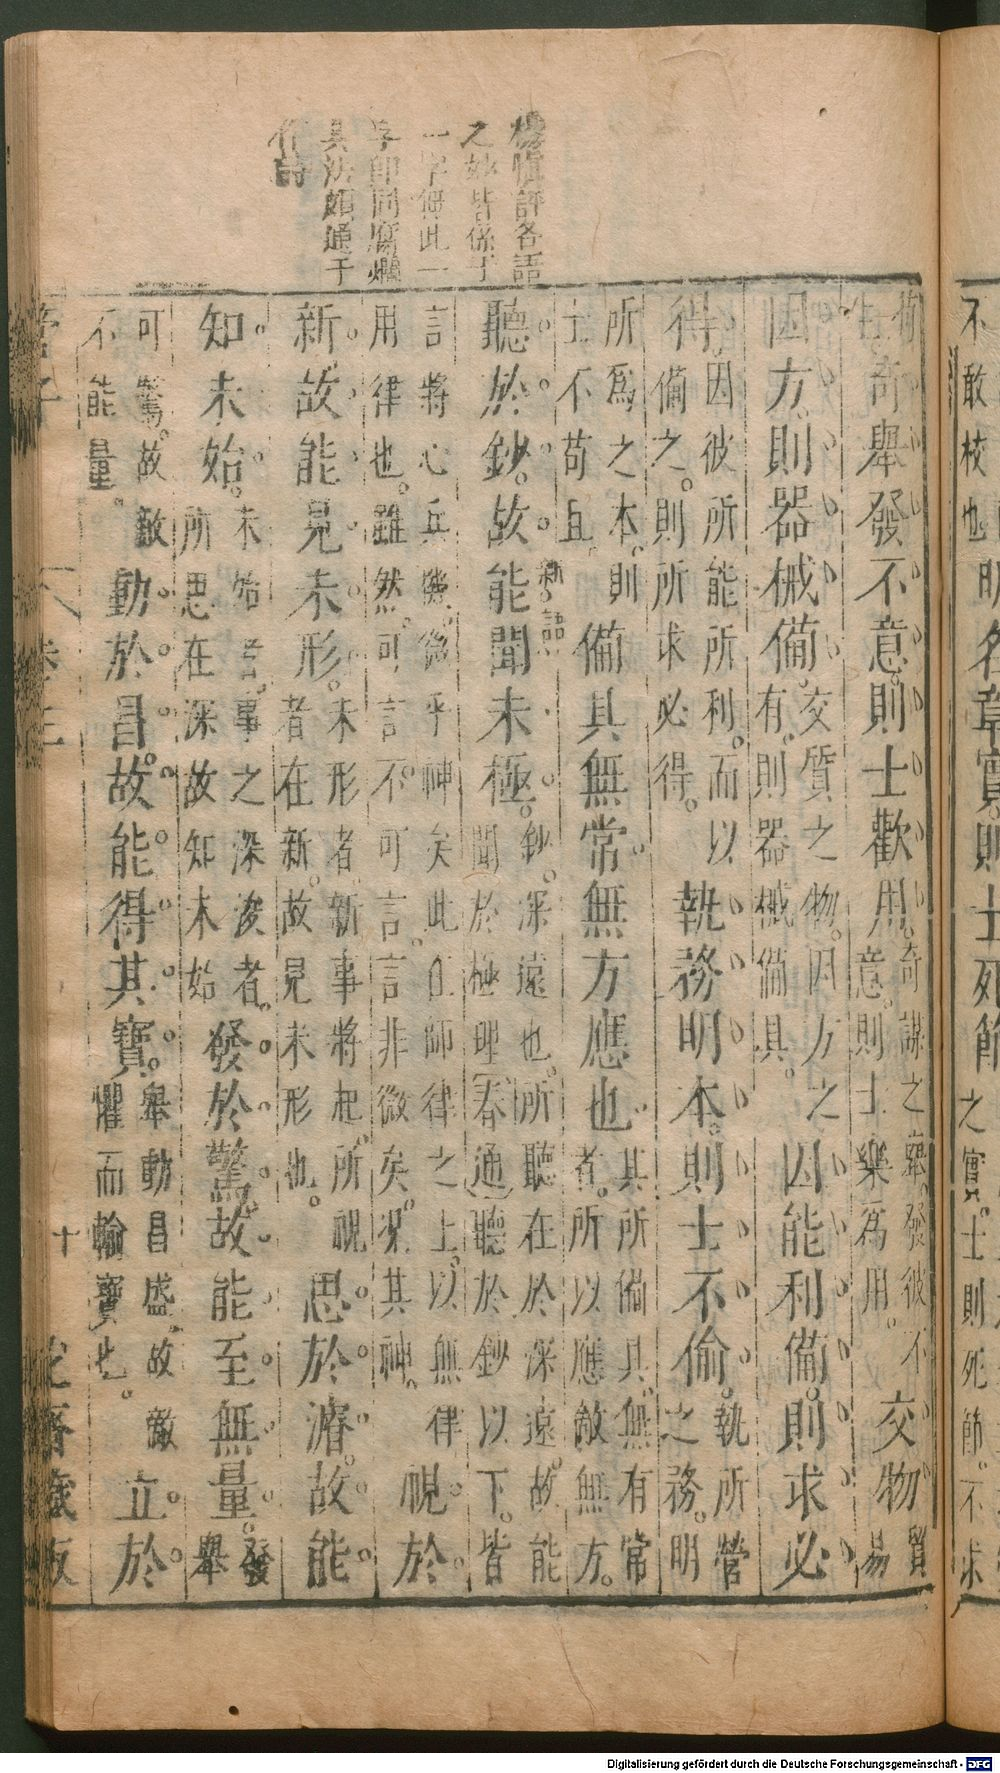 不敢校也明名章實則士死節之實士則死節不求
偷生奇舉發不意則士歡用奇謀之舉發彼不意則士樂為用交物質易
因方則器械備交質之物因方之有則器械備具因能利備則求必
得因彼所能所利而以備之則所求必得執務明本則士不偷執所營之務明
所為之本則士不苟且備具無常無方應也其所備具無有常者所以應敵無方
聽於鈔故能聞未極鈔深遠也所聽在於深遠故能聞於極理春通聽於鈔以下皆
新語
言將心兵幾微乎神矣此在師律之上以無律用律也雖然可言不可言言非微矣況其神視於
新故能見未形未形者新事將起所視者在新故見未形也思於濬故能
知未始未始者事之深浚者所思在深故知未始發於驚故能至無量發舉
可驚故敵不能量動於昌故能得其寶舉動昌盛故敵懼而輸寶也立於
楊慎評各語
之妙皆係于
一字無此一
字即同腐爛
其法頗通于
作詩
管子
卷三
十
花齋藏板
Digitalisierung gefördert durch die Deutsche Forschungsgemeinschaft - DFG